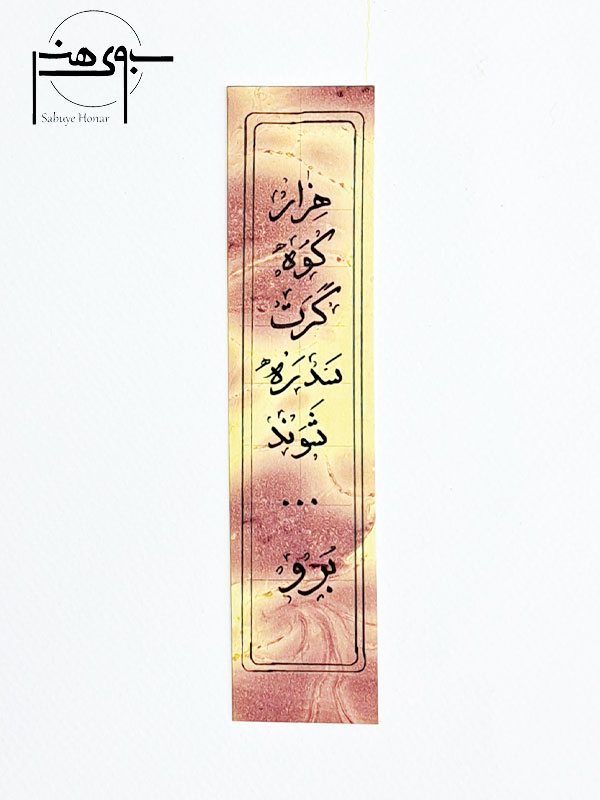 سبوی هنر
Sabuye Honar
هِزار
کوُه
گَرَت
سَدِّ رَه
شَوَند
...
بُرَو